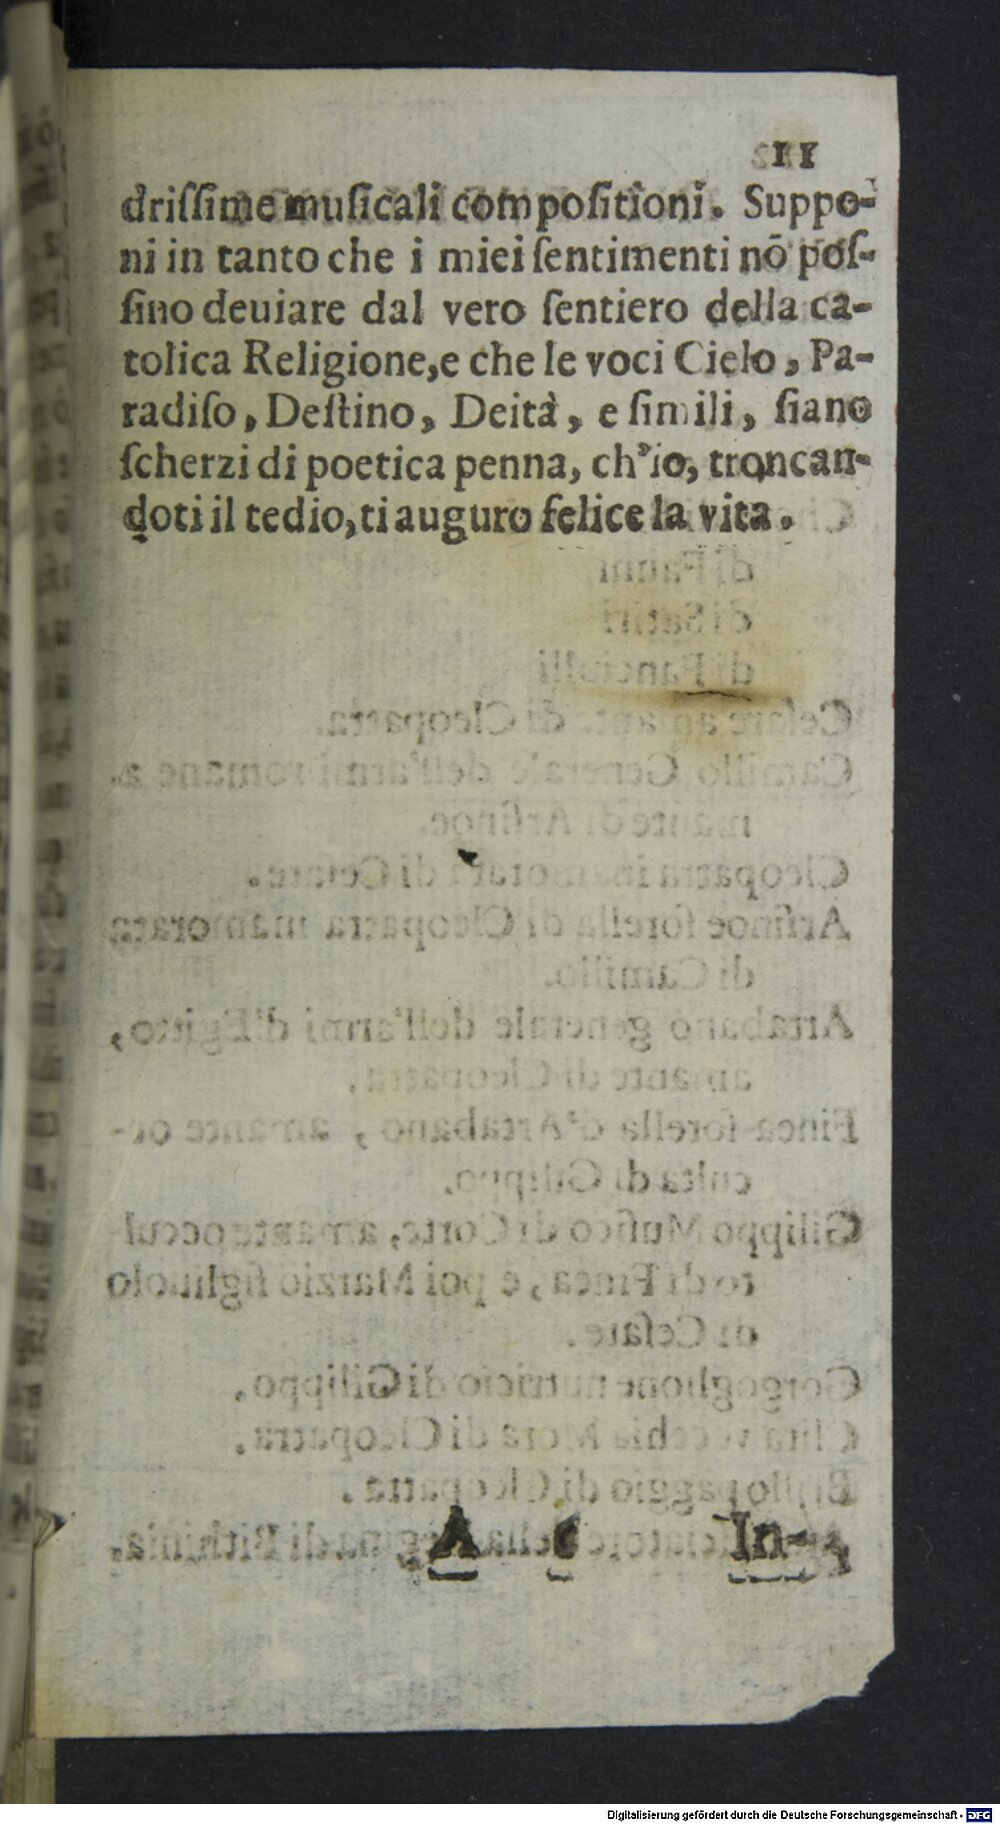 11
driſſime muſicali compoſitioni. Suppo-
ni in tanto che i miei ſentimenti nō poſ-
ſino deuiare dal vero ſentiero della ca-
tolica Religione,e che le voci Cielo, Pa-
radiſo, Deſtino, Deità, e ſimili, ſiano
ſcherzi di poetica penna, ch'io, troncan-
doti il tedio,ti auguro felice la vita.
A In-
Digitalisierung gefördert durch die Deutsche Forschungsgemeinschaft - DFG